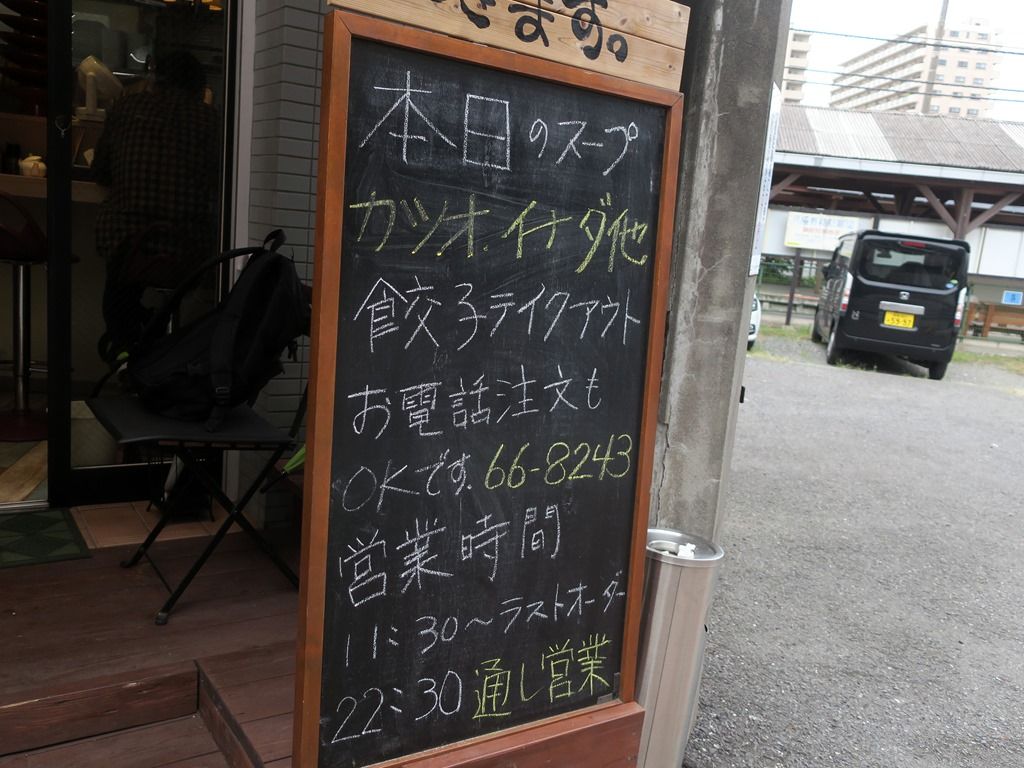 ざます。
本日のスープ
カツオ.イナダ他
餃子テイクアウト
お電話注文も
OKです。66-8243
営業時間
11:30〜ラストオーダー
22:30 通し営業